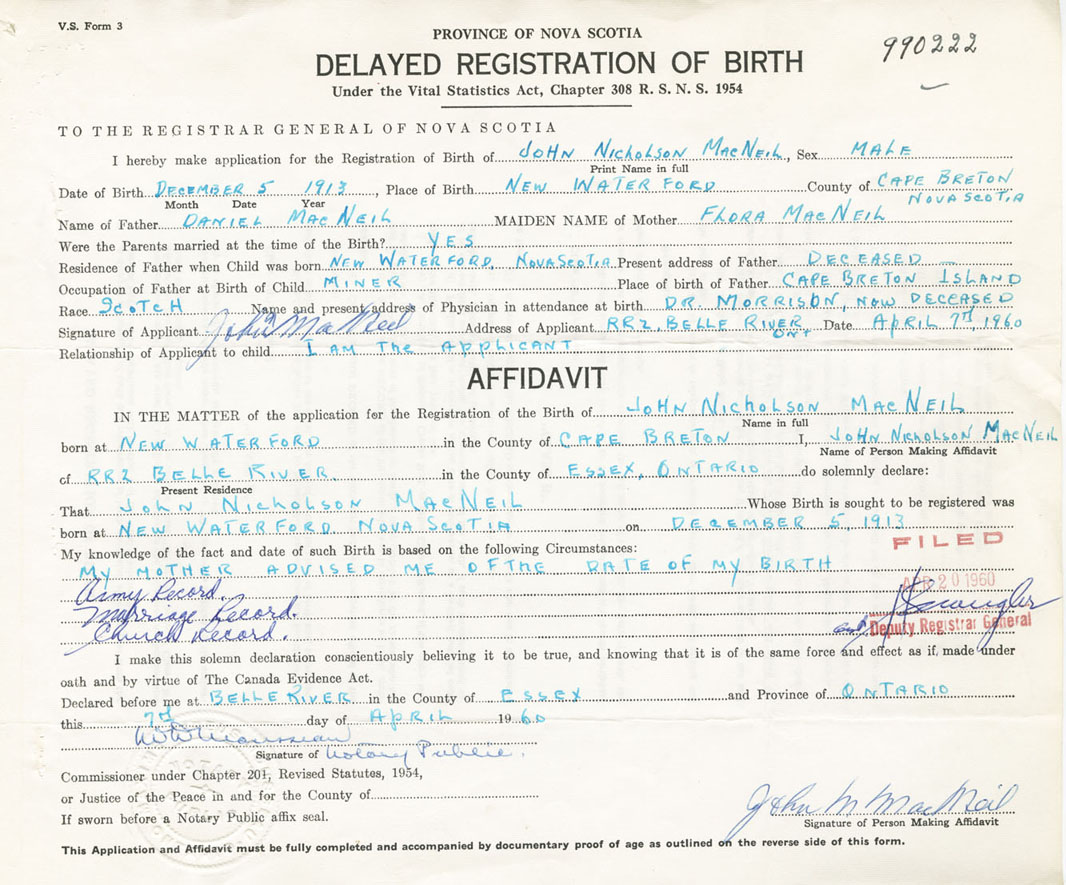 V.S. Form 3
PROVINCE OF NOVA SCOTIA
990222
DELAYED REGISTRATION OF BIRTH
Under the Vital Statistics Act, Chapter 308 R. S. N. S. 1954
TO THE REGISTRAR GENERAL OF NOVA SCOTIA
I hereby make application for the Registration of Birth of JOHN NICHOLSON MACNEIL, Sex MALE
Print Name in full
Date of Birth DECEMBER 5 1913, Place of Birth NEW WATERFORD County of CAPE BRETON
Month Date Year NOVA SCOTIA
Name of Father DANIEL MACNEIL MAIDEN NAME of Mother FLORA MACNEIL
Were the Parents married at the time of the Birth? YES
Residence of Father when Child was born NEW WATERFORD, NOVA SCOTIA Present address of Father DECEASED
Occupation of Father at Birth of Child MINER Place of birth of Father CAPE BRETON ISLAND
Race SCOTCH Name and present address of Physician in attendance at birth DR. MORRISON, NOW DECEASED
Signature of Applicant John MacNeil Address of Applicant RR2 BELLE RIVER Date APRIL 7TH, 1960
ONT
Relationship of Applicant to child I AM THE APPLICANT
AFFIDAVIT
IN THE MATTER of the application for the Registration of the Birth of JOHN NICHOLSON MACNEIL
Name in full
born at NEW WATERFORD in the County of CAPE BRETON I, JOHN NICHOLSON MACNEIL
Name of Person Making Affidavit
of RR2 BELLE RIVER in the County of ESSEX, ONTARIO do solemnly declare:
Present Residence
That JOHN NICHOLSON MACNEIL Whose Birth is sought to be registered was
born at NEW WATERFORD NOVA SCOTIA on DECEMBER 5, 1913
My knowledge of the fact and date of such Birth is based on the following Circumstances:
FILED
MY MOTHER ADVISED ME OF THE DATE OF MY BIRTH
Army Record. APR 20 1960
Marriage Record.
Church Record. Deputy Registrar General
I make this solemn declaration conscientiously believing it to be true, and knowing that it is of the same force and effect as if made under
oath and by virtue of The Canada Evidence Act.
Declared before me at BELLE RIVER in the County of ESSEX and Province of ONTARIO
this 7TH day of APRIL 1960
Signature of Notary Public.
Commissioner under Chapter 201, Revised Statutes, 1954,
or Justice of the Peace in and for the County of
John N MacNeil
If sworn before a Notary Public affix seal.
Signature of Person Making Affidavit
This Application and Affidavit must be fully completed and accompanied by documentary proof of age as outlined on the reverse side of this form.